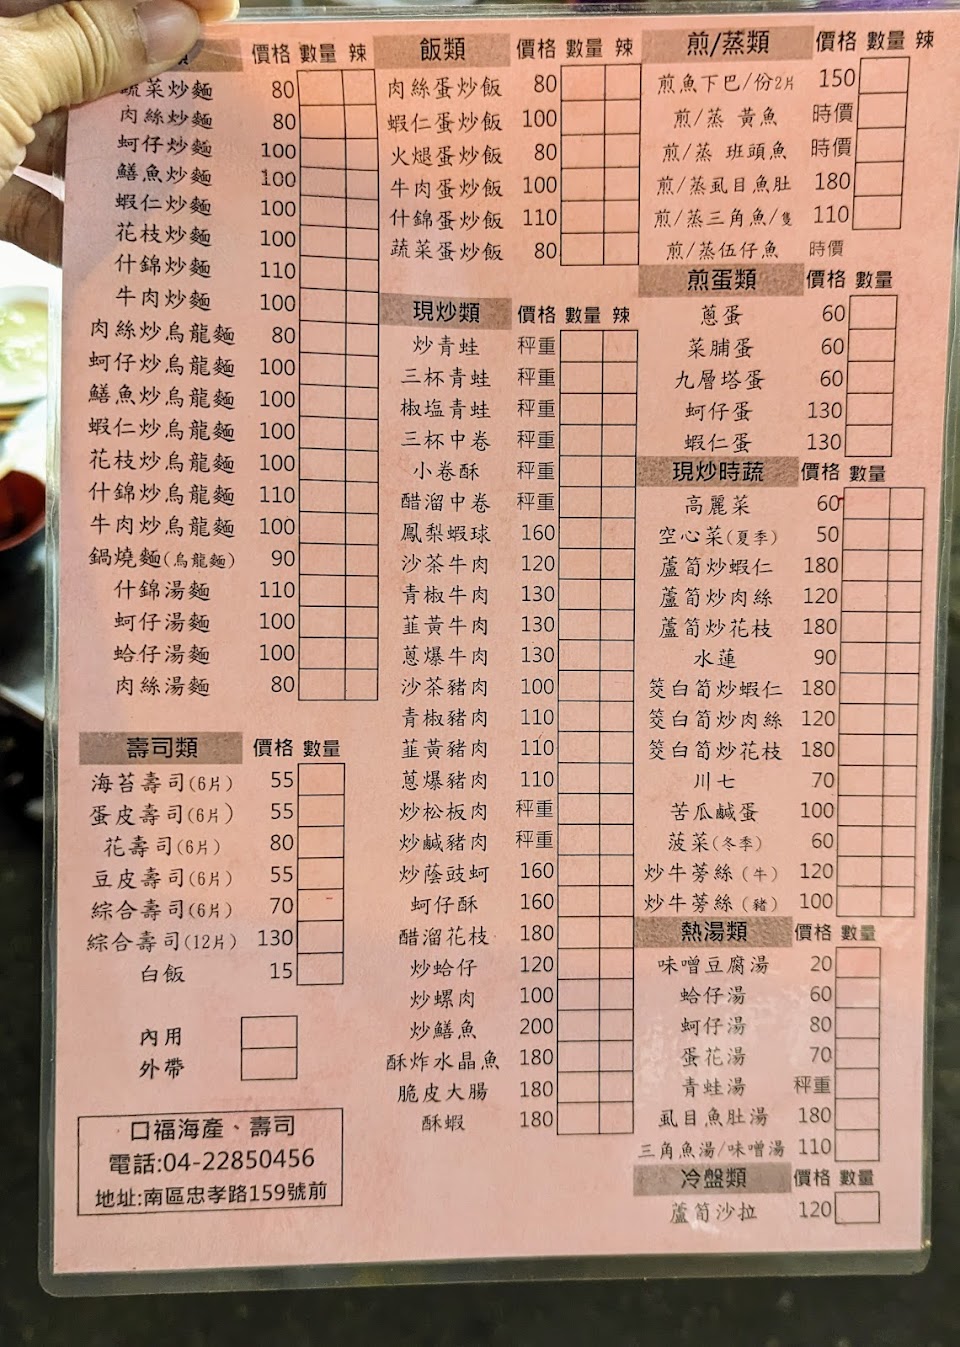 類 價格 數量 辣
蔬菜炒麵 80
肉絲炒麵 80
蚵仔炒麵 100
鱔魚炒麵 100
蝦仁炒麵 100
花枝炒麵 100
什錦炒麵 110
牛肉炒麵 100
肉絲炒烏龍麵 80
蚵仔炒烏龍麵 100
鱔魚炒烏龍麵 100
蝦仁炒烏龍麵 100
花枝炒烏龍麵 100
什錦炒烏龍麵 110
牛肉炒烏龍麵 100
鍋燒麵(烏龍麵) 90
什錦湯麵 110
蚵仔湯麵 100
蛤仔湯麵 100
肉絲湯麵 80
壽司類 價格 數量
海苔壽司(6片) 55
蛋皮壽司(6片) 55
花壽司(6片) 80
豆皮壽司(6片) 55
綜合壽司(6片) 70
綜合壽司(12片) 130
白飯 15
內用
外帶
口福海產、壽司
電話:04-22850456
地址:南區忠孝路159號前
飯類 價格 數量 辣
肉絲蛋炒飯 80
蝦仁蛋炒飯 100
火腿蛋炒飯 80
牛肉蛋炒飯 100
什錦蛋炒飯 110
蔬菜蛋炒飯 80
現炒類 價格 數量 辣
炒青蛙 秤重
三杯青蛙 秤重
椒塩青蛙 秤重
三杯中卷 秤重
小卷酥 秤重
醋溜中卷 秤重
鳳梨蝦球 160
沙茶牛肉 120
青椒牛肉 130
韮黃牛肉 130
蔥爆牛肉 130
沙茶豬肉 100
青椒豬肉 110
韮黃豬肉 110
蔥爆豬肉 110
炒松板肉 秤重
炒鹹豬肉 秤重
炒蔭豉蚵 160
蚵仔酥 160
醋溜花枝 180
炒蛤仔 120
炒螺肉 100
炒鱔魚 200
酥炸水晶魚 180
脆皮大腸 180
酥蝦 180
煎/蒸類 價格 數量 辣
煎魚下巴/份2片 150
煎/蒸 黃魚 時價
煎/蒸 班頭魚 時價
煎/蒸虱目魚肚 180
煎/蒸三角魚/隻 110
煎/蒸伍仔魚 時價
煎蛋類 價格 數量
蔥蛋 60
菜脯蛋 60
九層塔蛋 60
蚵仔蛋 130
蝦仁蛋 130
現炒時蔬 價格 數量
高麗菜 60
空心菜(夏季) 50
蘆筍炒蝦仁 180
蘆筍炒肉絲 120
蘆筍炒花枝 180
水蓮 90
筊白筍炒蝦仁 180
筊白筍炒肉絲 120
筊白筍炒花枝 180
川七 70
苦瓜鹹蛋 100
菠菜(冬季) 60
炒牛蒡絲(牛) 120
炒牛蒡絲(豬) 100
熱湯類 價格 數量
味噌豆腐湯 20
蛤仔湯 60
蚵仔湯 80
蛋花湯 70
青蛙湯 秤重
虱目魚肚湯 180
三角魚湯/味噌湯 110
冷盤類 價格 數量
蘆筍沙拉 120